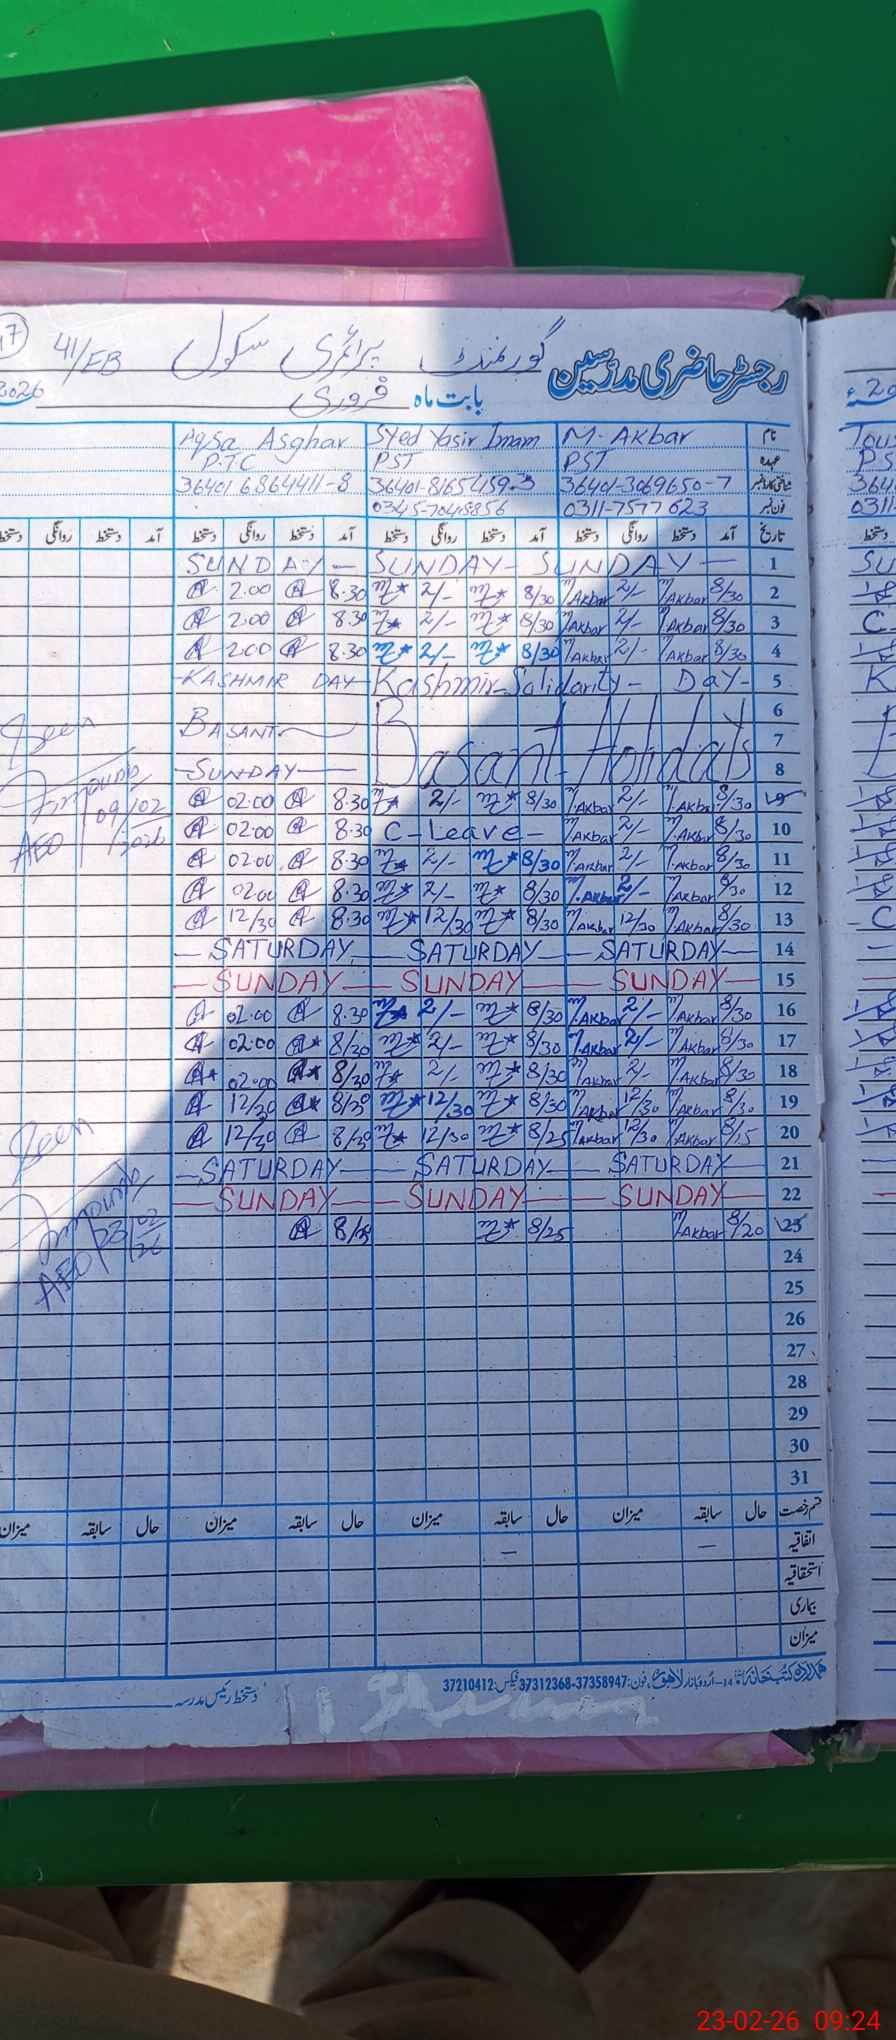 رجسٹر حاضری مدرسین گورنمنٹ پرائمری سکول 41/EB 17
بابت ماہ فروری 2026
نام M. Akbar Syed Yasir Imam Aqsa Asghar
عہدہ PST PST PTC
شناختی کارڈ نمبر 36401-3069650-7 36401-8165459-3 36401 6864411-8
فون نمبر 0311-7577623
تاریخ آمد دستخط روانگی دستخط آمد دستخط روانگی دستخط آمد دستخط روانگی دستخط آمد دستخط روانگی دستخط
1 SUNDAY SUNDAY SUNDAY
2 8/30 M.Akbar 2/- M.Akbar 8/30 2/- 8.30 2.00
3 8/30 M.Akbar 2/- M.Akbar 8/30 2/- 8.30 2.00
4 8/30 M.Akbar 2/- M.Akbar 8/30 2/- 8.30 2.00
5 Kashmir Solidarity Day KASHMIR DAY
6
7 Basant Holidats BASANT
8 SUNDAY
9 8/30 M.Akbar 2/- M.Akbar 8/30 2/- 8.30 02.00
10 8/30 M.Akbar 2/- M.Akbar C-Leave 8.30 02.00
11 8/30 M.Akbar 2/- M.Akbar 8/30 2/- 8.30 02.00
12 8/30 M.Akbar 2/- M.Akbar 8/30 2/- 8.30 02.00
13 8/30 M.Akbar 12/30 M.Akbar 8/30 12/30 8.30 12/30
14 SATURDAY SATURDAY SATURDAY
15 SUNDAY SUNDAY SUNDAY
16 8/30 M.Akbar 2/- M.Akbar 8/30 2/- 8.30 02.00
17 8/30 M.Akbar 2/- M.Akbar 8/30 2/- 8/30 02.00
18 8/30 M.Akbar 2/- M.Akbar 8/30 2/- 8/30 02.00
19 8/30 M.Akbar 12/30 M.Akbar 8/30 12/30 8/30 12/30
20 8/15 M.Akbar 12/30 M.Akbar 8/25 12/30 8/30 12/30
21 SATURDAY SATURDAY SATURDAY
22 SUNDAY SUNDAY SUNDAY
23 8/20 M.Akbar 8/25
24
25
26
27
28
29
30
31
Seen
09/02/2026
AEO
Seen
23/02/26
AEO
قسم رخصت حال سابقہ میزان حال سابقہ میزان حال سابقہ میزان حال سابقہ میزان
اتفاقیہ
استحقاقیہ
بیماری
میزان
ہمدرد کتب خانہ 14-اُردو بازار لاہور فون: 37358947-37312368 فیکس: 37210412
دستخط رئیس مدرسہ
23-02-26 09:24